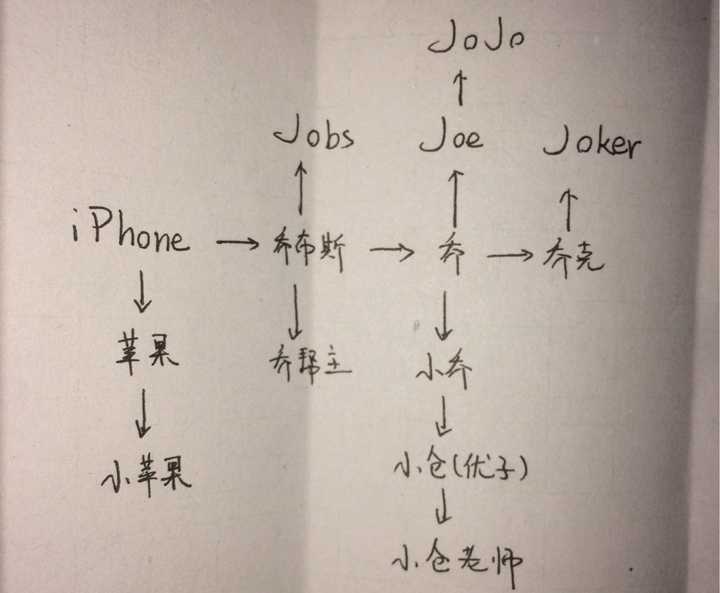 JoJo
Jobs Joe Joker
iPhone → 乔布斯 → 乔 → 乔克
苹果 乔帮主 小乔
小苹果 小仓(优子)
小仓老师